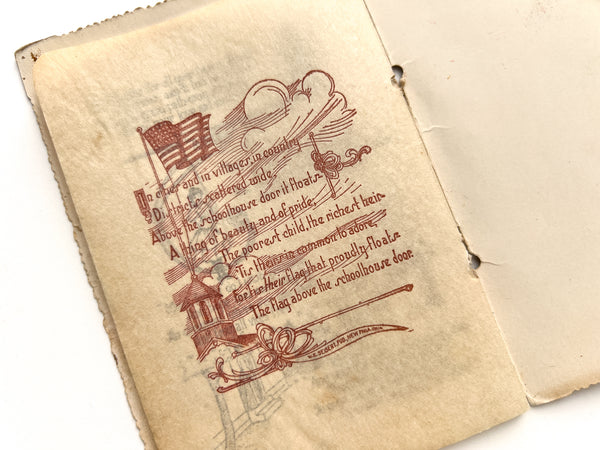 In cities and in villages in country
Districts scattered wide
Above the schoolhouse door it floats-
A thing of beauty and of pride;
The poorest child, the richest heir-
'Tis theirs in common to adore,
For 'tis their flag that proudly floats-
The flag above the schoolhouse door.
PUB. NEW PHILA. OHIO